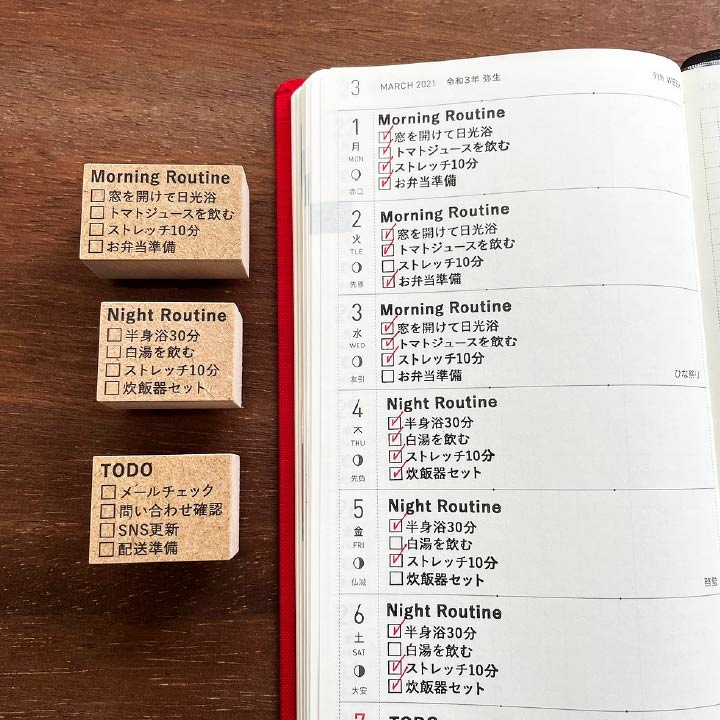 Morning Routine
□窓を開けて日光浴
□トマトジュースを飲む
□ストレッチ10分
□お弁当準備
Night Routine
□半身浴30分
□白湯を飲む
□ストレッチ10分
□炊飯器セット
TODO
□メールチェック
□問い合わせ確認
□SNS更新
□配送準備
3 MARCH 2021 令和3年 弥生
9th WEEK
1 月 MON 赤口
Morning Routine
☑窓を開けて日光浴
☑トマトジュースを飲む
☑ストレッチ10分
☑お弁当準備
2 火 TUE 先勝
Morning Routine
☑窓を開けて日光浴
☑トマトジュースを飲む
□ストレッチ10分
☑お弁当準備
3 水 WED 友引
Morning Routine
☑窓を開けて日光浴
☑トマトジュースを飲む
☑ストレッチ10分
□お弁当準備
ひな祭り
4 木 THU 先負
Night Routine
☑半身浴30分
☑白湯を飲む
☑ストレッチ10分
☑炊飯器セット
5 金 FRI 仏滅
Night Routine
☑半身浴30分
□白湯を飲む
☑ストレッチ10分
□炊飯器セット
啓蟄
6 土 SAT 大安
Night Routine
☑半身浴30分
□白湯を飲む
☑ストレッチ10分
☑炊飯器セット
7
TODO